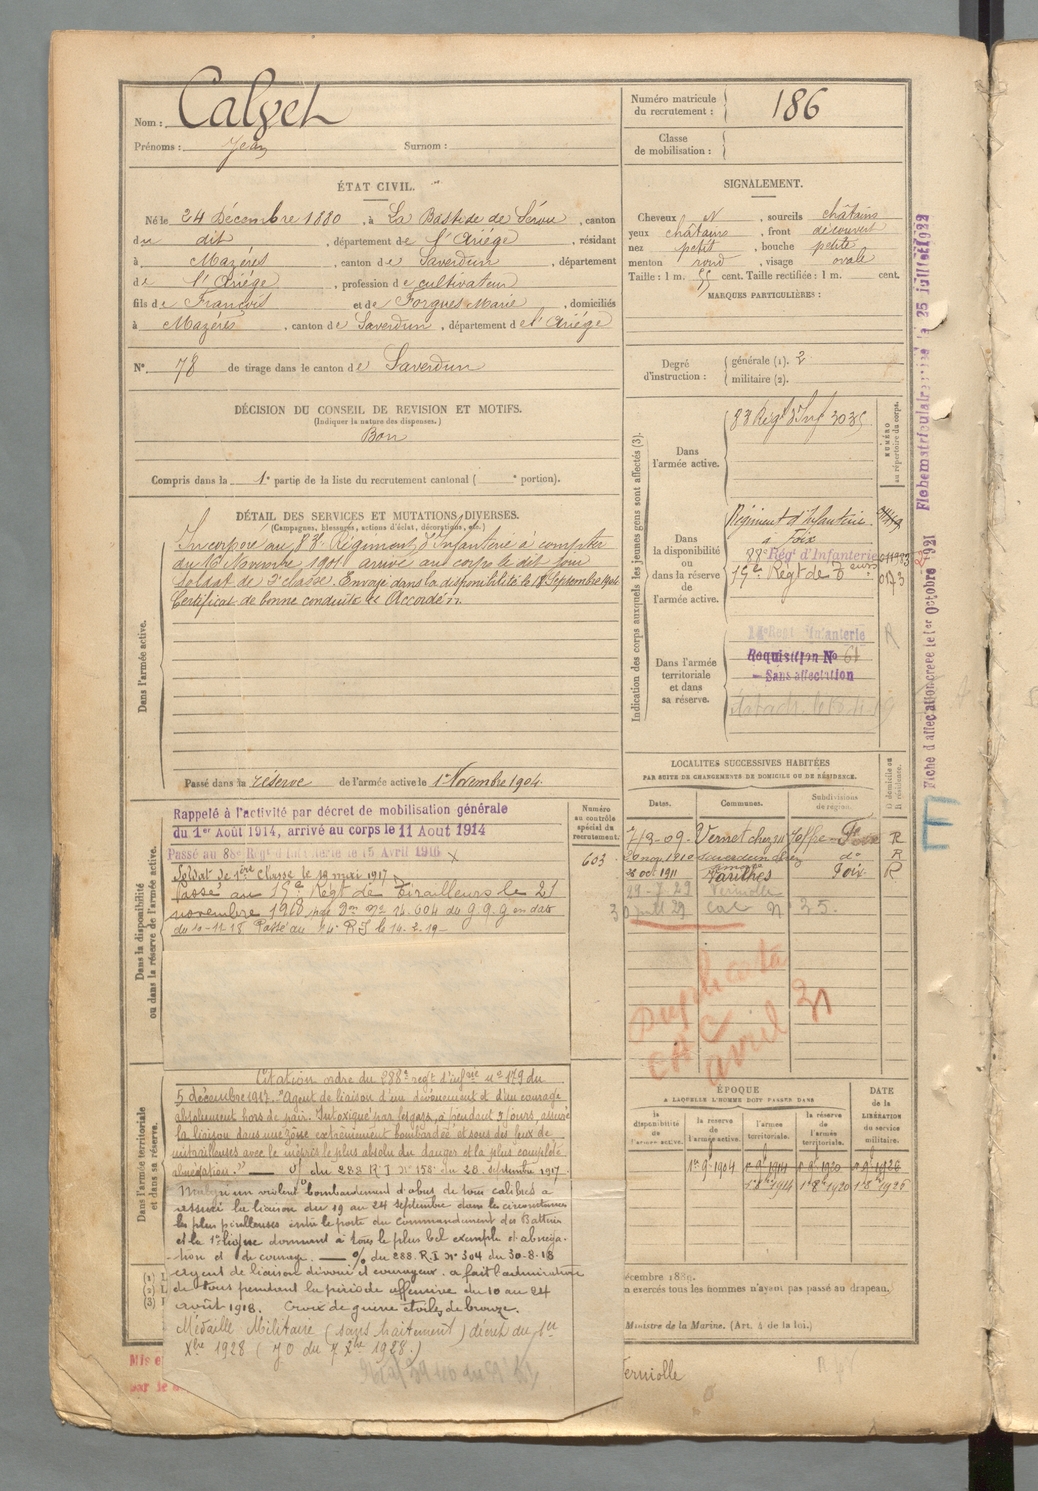 Nom : Calvet
Prénoms : Jean Surnom :
Numéro matricule du recrutement : 186
Classe de mobilisation :
ÉTAT CIVIL.
Né le 24 Décembre 1880, à La Bastide de Sérou, canton
du dit, département de l'Ariége, résidant
à Mazéres, canton de Saverdun, département
de l'Ariége, profession de cultivateur
fils de François et de Forgues Marie, domiciliés
à Mazéres, canton de Saverdun, département de l'Ariége
N° 78 de tirage dans le canton de Saverdun
DÉCISION DU CONSEIL DE REVISION ET MOTIFS.
(Indiquer la nature des dispenses.)
Bon
Compris dans la 1e partie de la liste du recrutement cantonal ( e portion).
SIGNALEMENT.
Cheveux N, sourcils châtains
yeux châtains, front découvert
nez petit, bouche petite
menton rond, visage ovale
Taille : 1 m. 55 cent. Taille rectifiée : 1 m. cent.
MARQUES PARTICULIÈRES :
Degré d'instruction : générale (1). 2
militaire (2).
DÉTAIL DES SERVICES ET MUTATIONS DIVERSES.
(Campagnes, blessures, actions d'éclat, décorations, etc.)
Dans l'armée active.
Incorporé au 83e Régiment d'Infanterie à compter
du 16 Novembre 1901 arrivé au corps le dit jour
soldat de 2e classe. Envoyé dans la disponibilité le 18 Septembre 1904
Certificat de bonne conduite Accordé
Passé dans la réserve de l'armée active le 1er Novembre 1904
Indication des corps auxquels les jeunes gens sont affectés (3).
NUMÉRO au répertoire du corps.
Dans l'armée active.
83e Régt d'Inf 3035
Dans la disponibilité ou dans la réserve de l'armée active.
Régiment d'Infanterie
à Foix
88e Régt d'Infanterie
15e Régt de Teurs
Dans l'armée territoriale et dans sa réserve.
Régt Infanterie
Requisition No 61
Sans affectation
Fiche d'affectation créée le 1er Octobre 1921
Fiche matriculaire le 25 juillet 1922
Dans la disponibilité ou dans la réserve de l'armée active.
Numéro au contrôle spécial du recrutement.
603
Rappelé à l'activité par décret de mobilisation générale
du 1er Août 1914, arrivé au corps le 11 Aout 1914
Passé au 88e Régt d'Infanterie le 15 Avril 1916
Soldat de 1ère Classe le 19 mai 1917
Passé au 15e Régt de Tirailleurs le 21
novembre 1918 par Don No 14.604 du G.Q.G en date
du 20-11-18 Passé au 14e R.I le 14.2.19
LOCALITES SUCCESSIVES HABITÉES
PAR SUITE DE CHANGEMENTS DE DOMICILE OU DE RÉSIDENCE.
Dates. Communes. Subdivisions de région. D domicile ou R résidence.
7-3-09 Vernet chez Foix R
20 nov. 1910 Saverdun do R
28 oct 1911 Varilhes Foix R
29-7-29 Verniolle
Duplicata
avril 31
Dans l'armée territoriale et dans sa réserve.
Citation ordre du 288e regt d'infrie no 179 du
5 décembre 1917. "Agent de liaison d'un dévouement et d'un courage
absolument hors de pair. Intoxiqué par les gaz, a pendant 2 jours, assuré
la liaison dans une zone extrêmement bombardée et sous des feux de
mitrailleuses avec le mépris le plus absolu du danger et la plus complète
abnégation." — o/ du 288 R.I No 158 du 28 septembre 1917
Malgré un violent bombardement d'obus de tous calibres a
assuré la liaison du 19 au 24 septembre dans les circonstances
les plus périlleuses entre le poste du Commandement des Battion
et la 1e ligne donnant à tous le plus bel exemple et abnéga-
tion et de courage. — o/o du 288. R.I. No 304 du 30-8-18
Agent de liaison dévoué et courageux. a fait l'admiration
de tous pendant la période offensive du 10 au 24
août 1918. Croix de guerre étoile de bronze.
Médaille Militaire (sans traitement) décret du 1er
Xbre 1928 (JO du 7 Xbre 1928.)
ÉPOQUE
A LAQUELLE L'HOMME DOIT PASSER DANS
la disponibilité de l'armée active.
la réserve de l'armée active.
l'armée territoriale.
la réserve de l'armée territoriale.
DATE de la LIBÉRATION du service militaire.
écembre 1889.
n exercés tous les hommes n'ayant pas passé au drapeau.
Ministre de la Marine. (Art. 4 de la loi.)
erniolle